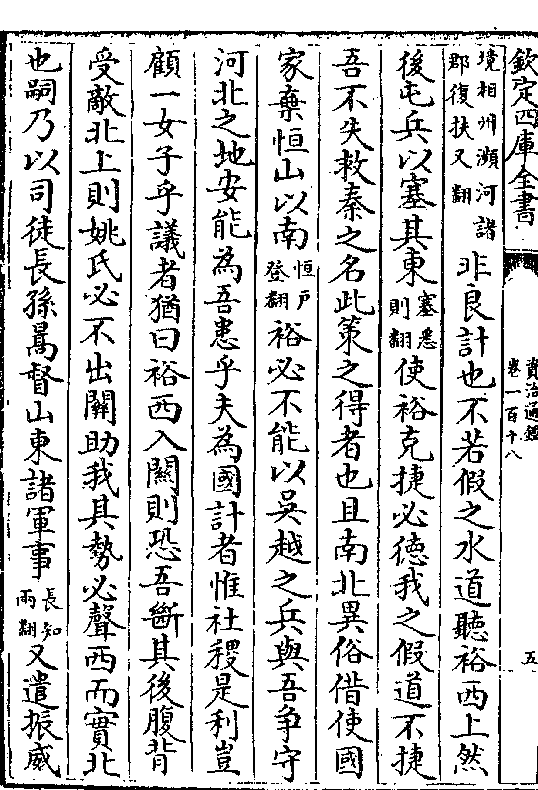 欽定四庫全書
資治通鑑
卷一百十八
五
境相州瀕河諸
郡復扶又翻
非良計也不若假之水道聽裕西上然
後屯兵以塞其東
塞悉
則翻
使裕克捷必德我之假道不捷
吾不失救秦之名此策之得者也且南北異俗借使國
家棄恒山以南
恒戶
登翻
裕必不能以吳越之兵與吾爭守
河北之地安能為吾患乎夫為國計者惟社稷是利豈
顧一女子乎議者猶曰裕西入關則恐吾斷其後腹背
受敵北上則姚氏必不出關助我其勢必聲西而實北
也嗣乃以司徒長孫嵩督山東諸軍事
長知
兩翻
又遣振威